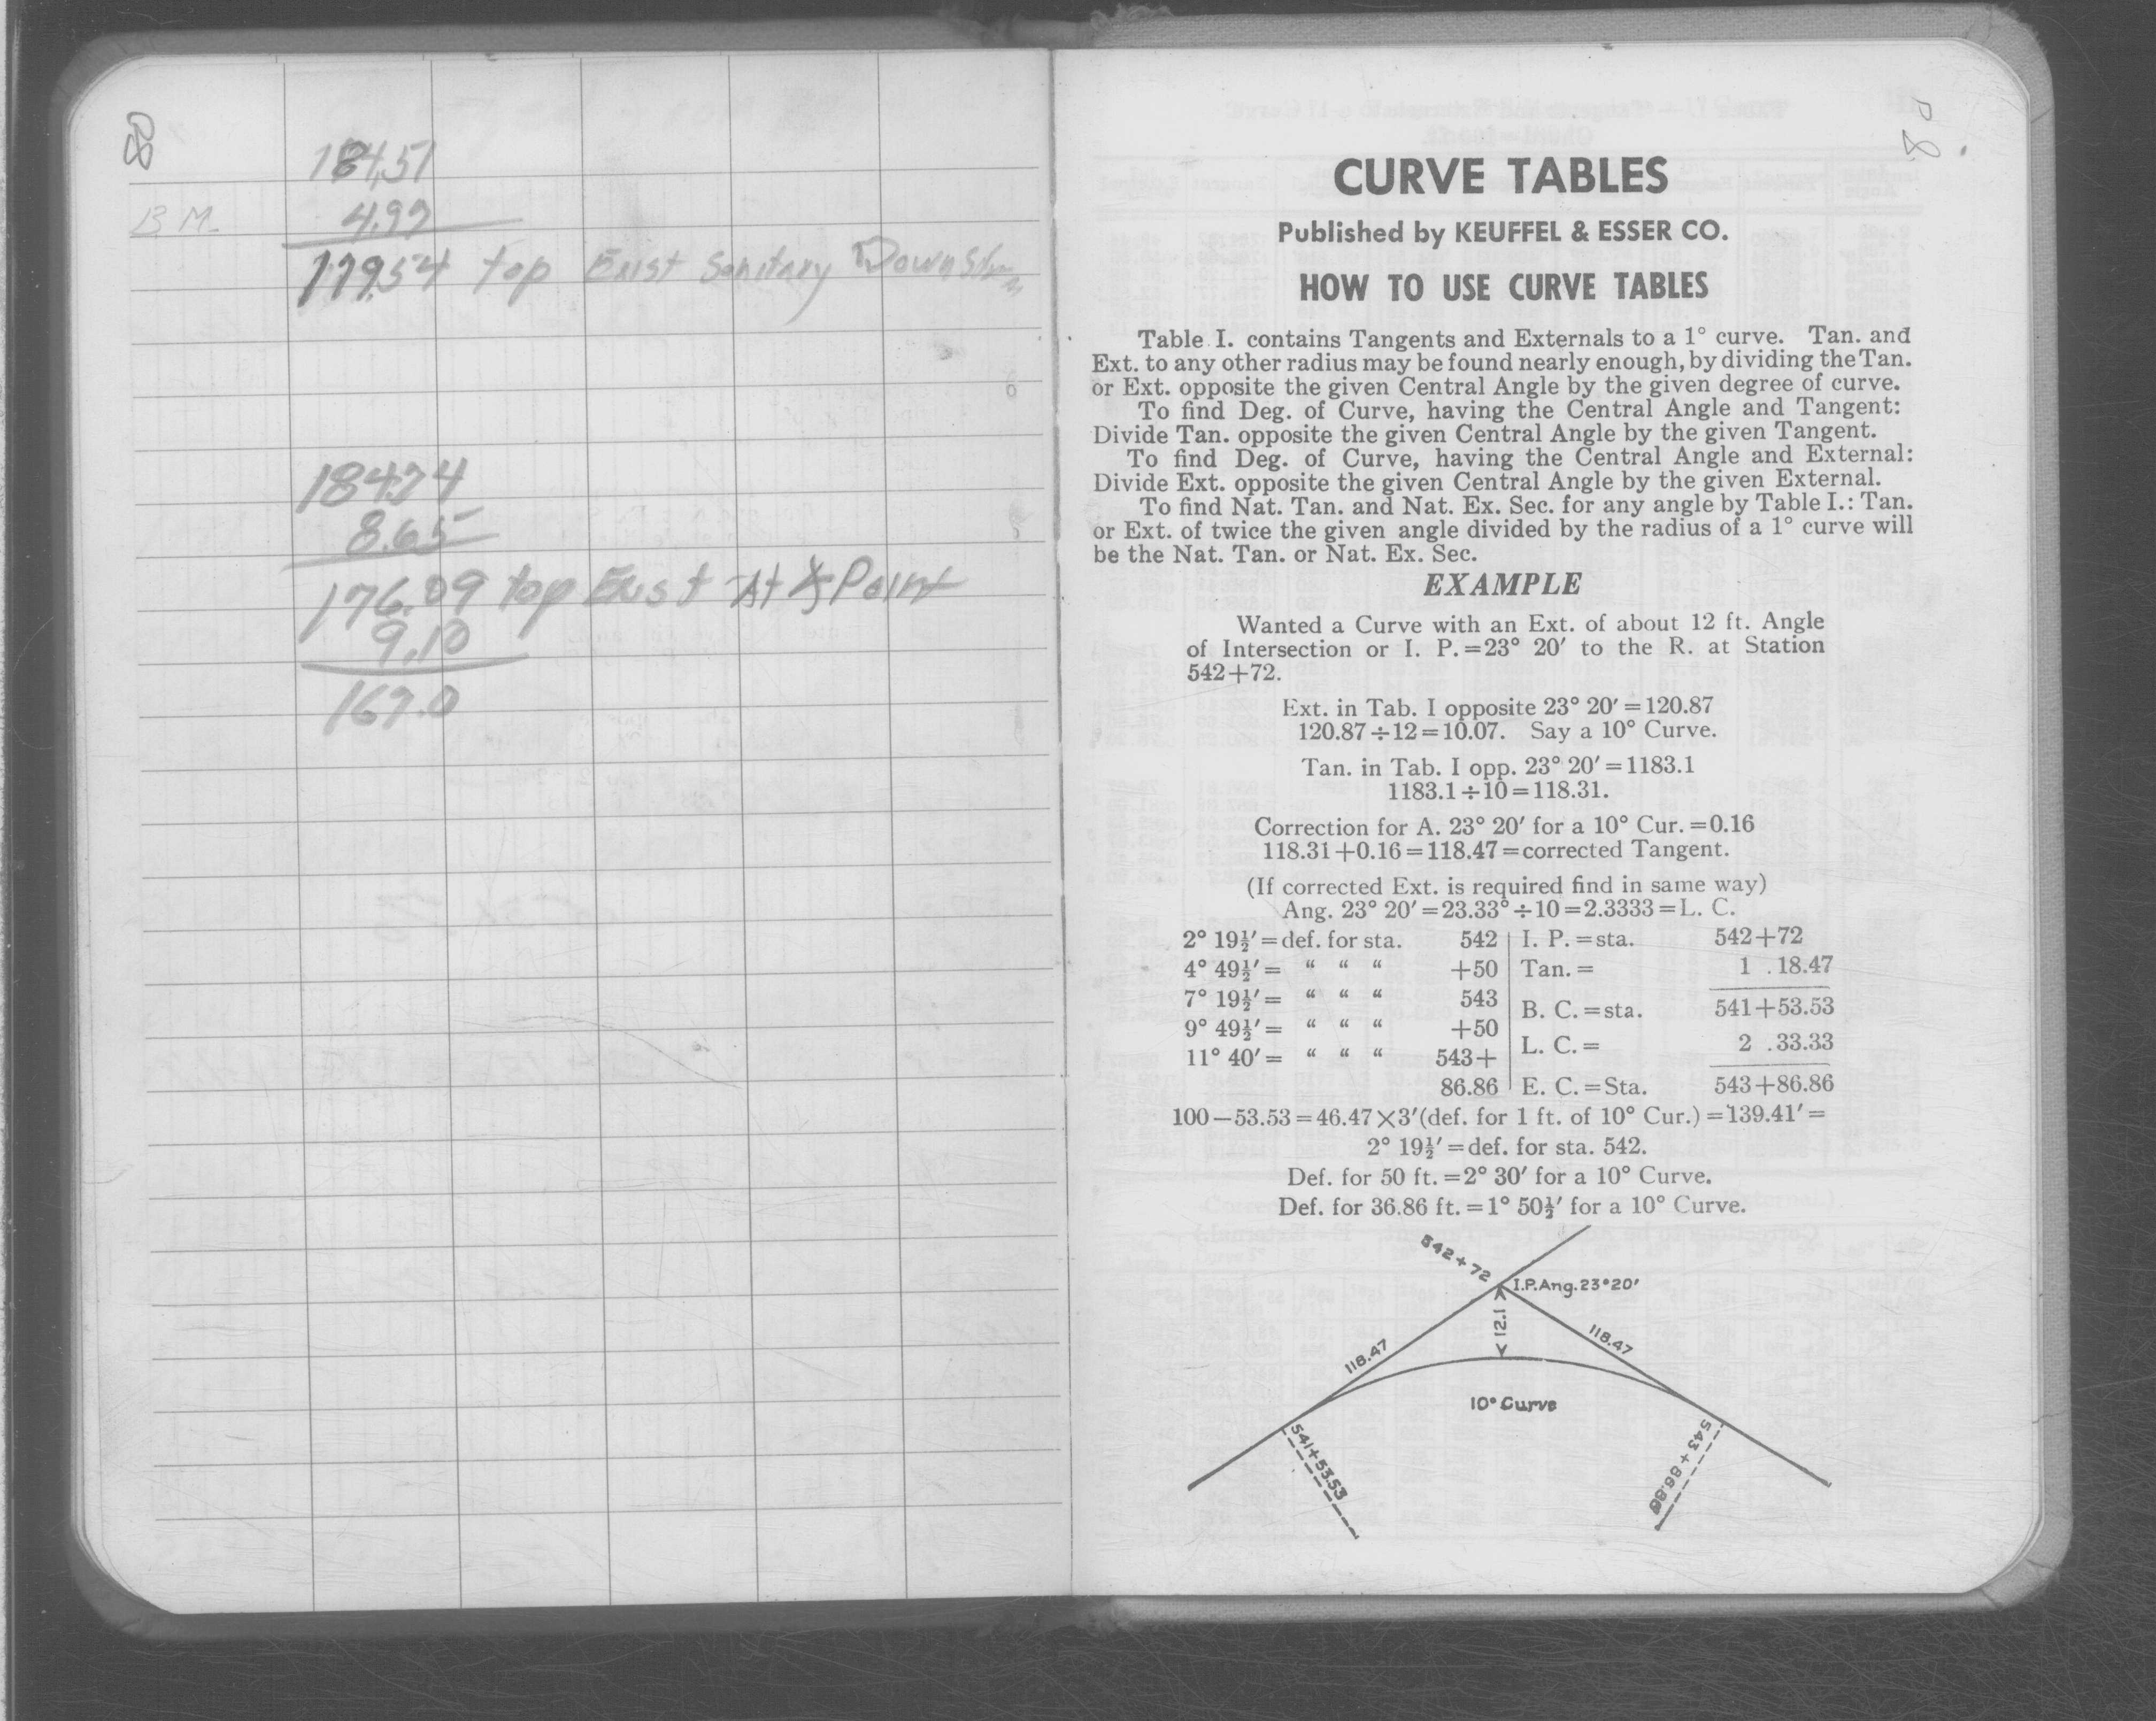 80
184.51
B.M. 4.97
179.54 top Exist Sanitary
184.74
8.65
176.09 top Exist At ∡ Point
9.10
167.0
80
CURVE TABLES
Published by KEUFFEL & ESSER CO.
HOW TO USE CURVE TABLES
Table I. contains Tangents and Externals to a 1° curve. Tan. and
Ext. to any other radius may be found nearly enough, by dividing the Tan.
or Ext. opposite the given Central Angle by the given degree of curve.
To find Deg. of Curve, having the Central Angle and Tangent:
Divide Tan. opposite the given Central Angle by the given Tangent.
To find Deg. of Curve, having the Central Angle and External:
Divide Ext. opposite the given Central Angle by the given External.
To find Nat. Tan. and Nat. Ex. Sec. for any angle by Table I.: Tan.
or Ext. of twice the given angle divided by the radius of a 1° curve will
be the Nat. Tan. or Nat. Ex. Sec.
EXAMPLE
Wanted a Curve with an Ext. of about 12 ft. Angle
of Intersection or I. P.=23° 20′ to the R. at Station
542+72.
Ext. in Tab. I opposite 23° 20′=120.87
120.87÷12=10.07. Say a 10° Curve.
Tan. in Tab. I opp. 23° 20′=1183.1
1183.1÷10=118.31.
Correction for A. 23° 20′ for a 10° Cur.=0.16
118.31+0.16=118.47=corrected Tangent.
(If corrected Ext. is required find in same way)
Ang. 23° 20′=23.33°÷10=2.3333=L. C.
2° 19½′=def. for sta. 542 I. P.=sta. 542+72
4° 49½′= “ “ “ +50 Tan.= 1 .18.47
7° 19½′= “ “ “ 543 B. C.=sta. 541+53.53
9° 49½′= “ “ “ +50 L. C.= 2 .33.33
11° 40′= “ “ “ 543+
86.86 E. C.=Sta. 543+86.86
100−53.53=46.47×3′(def. for 1 ft. of 10° Cur.)=139.41′=
2° 19½′=def. for sta. 542.
Def. for 50 ft.=2° 30′ for a 10° Curve.
Def. for 36.86 ft.=1° 50½′ for a 10° Curve.
542+72
I.P.Ang.23°20′
12.1
118.47
118.47
10° Curve
541+53.53
543+86.86